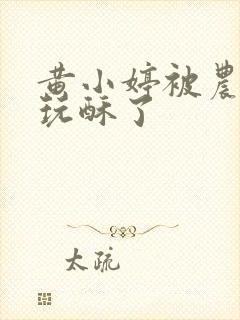 黄小婷被農
玩酥了
太疏